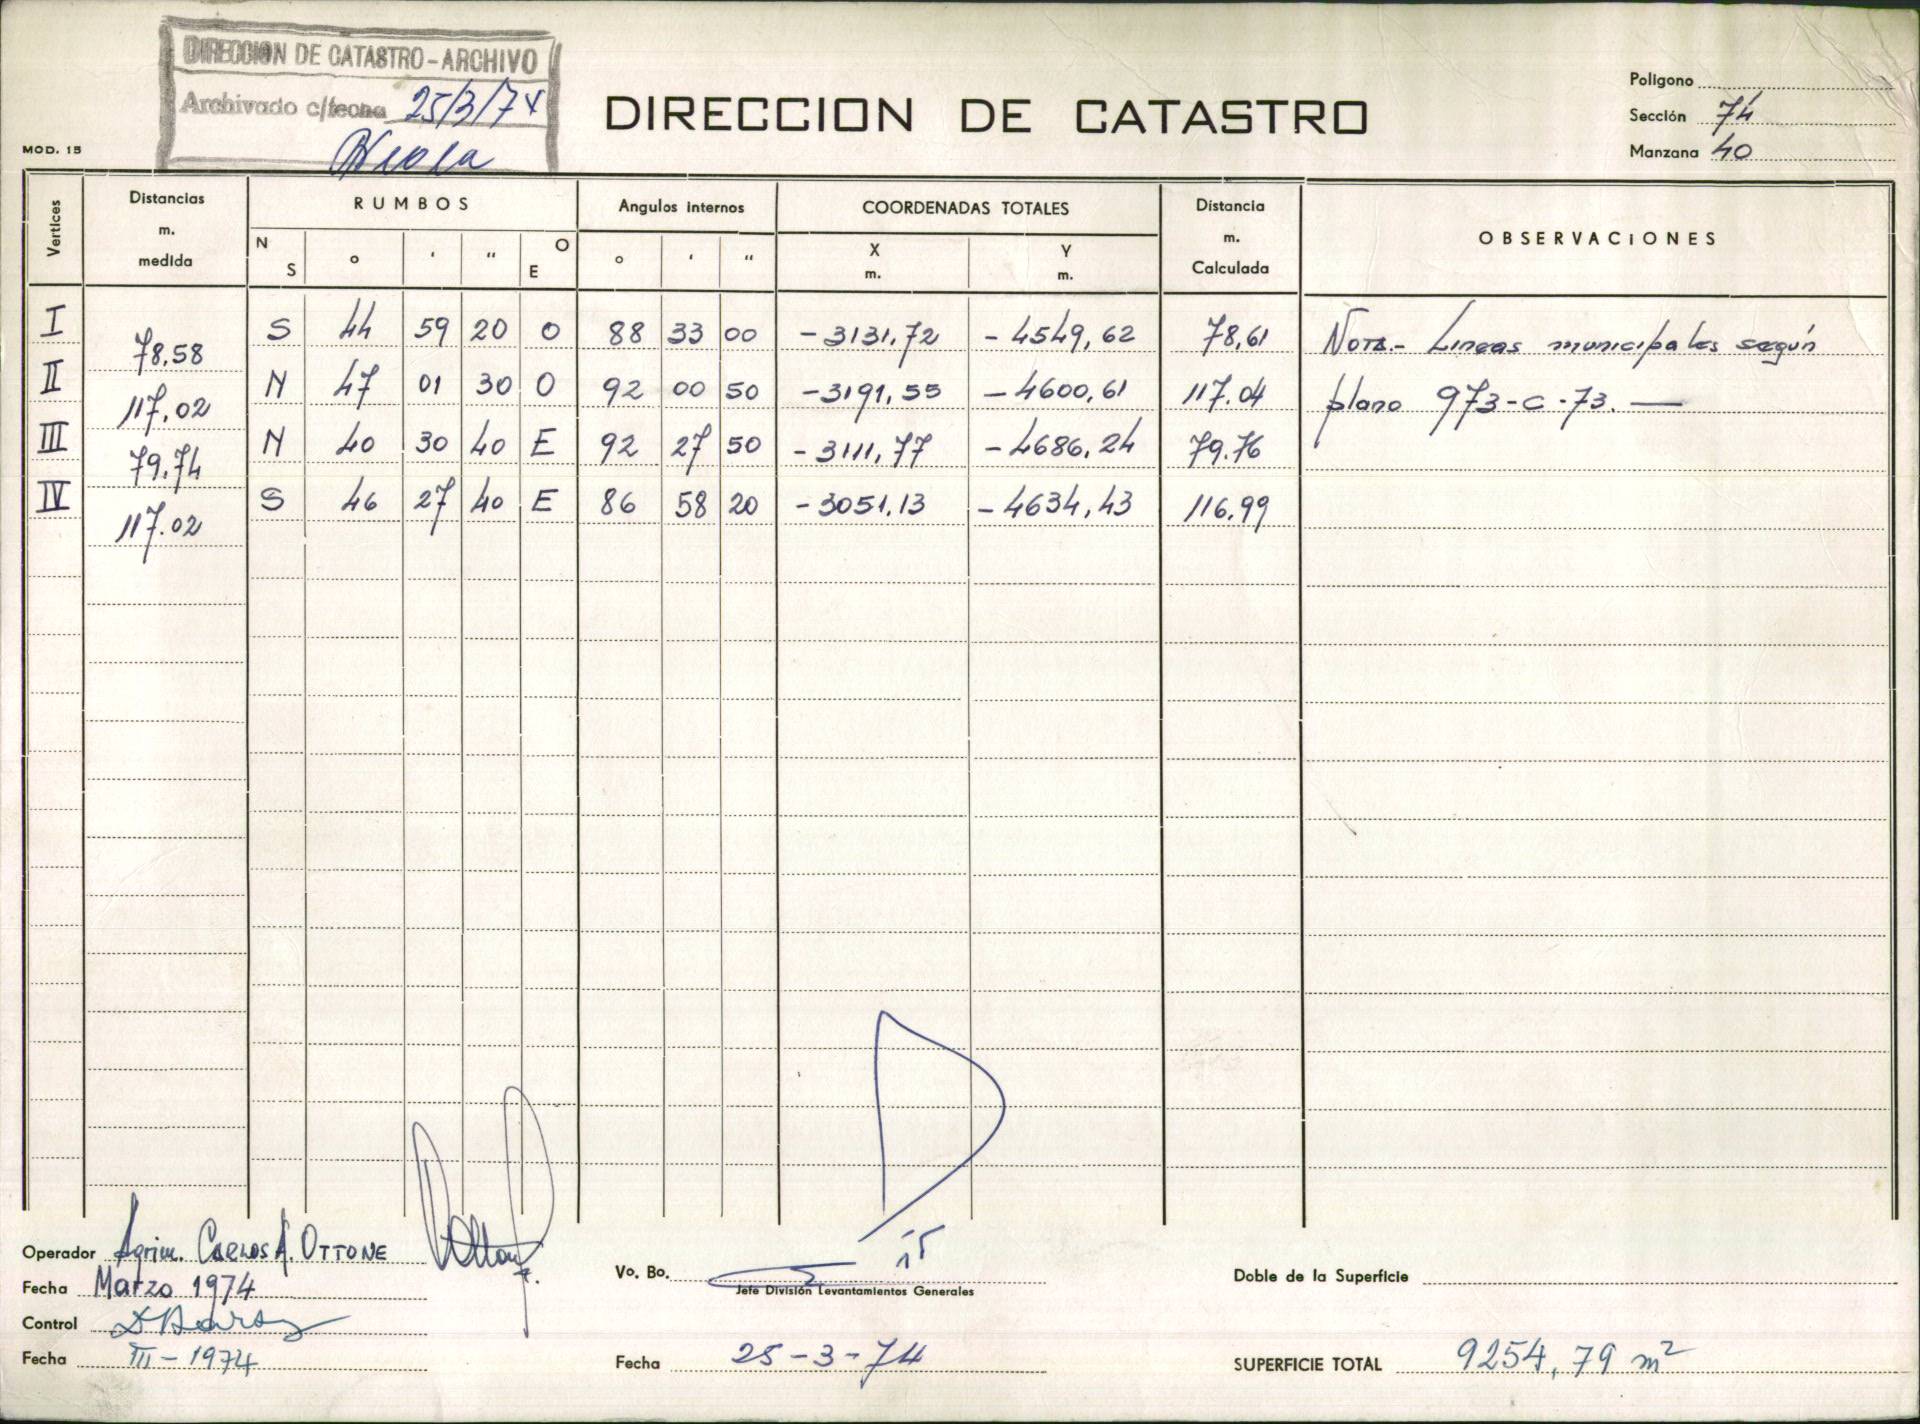 DIRECCION DE CATASTRO-ARCHIVO
Archivado c/fecha 25/3/74
DIRECCION DE CATASTRO
Polígono
Sección 74
Manzana 40
MOD. 15
Vertices | Distancias m. medida | RUMBOS | Angulos internos | COORDENADAS TOTALES | Distancia m. Calculada | OBSERVACIONES
N S | o | ' | " | O E | o | ' | " | X m. | Y m.
I | 78,58 | S | 44 | 59 | 20 | O | 88 | 33 | 00 | -3131,72 | -4549,62 | 78,61 | Nota.- Lineas municipales según
II | 117,02 | N | 47 | 01 | 30 | O | 92 | 00 | 50 | -3191,55 | -4600,61 | 117.04 | plano 973-C-73.—
III | 79,74 | N | 40 | 30 | 40 | E | 92 | 27 | 50 | -3111,77 | -4686,24 | 79.76
IV | 117.02 | S | 46 | 27 | 40 | E | 86 | 58 | 20 | -3051,13 | -4634,43 | 116,99
Operador Agrim. CARLOS A. OTTONE
Fecha Marzo 1974
Control
Fecha III-1974
Vo. Bo.
Jefe División Levantamientos Generales
Fecha 25-3-74
Doble de la Superficie
SUPERFICIE TOTAL 9254,79 m²